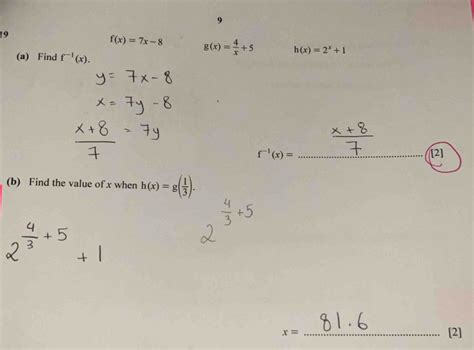 9
19
f(x) = 7x − 8    g(x) = 4/x + 5    h(x) = 2^x + 1
(a) Find f⁻¹(x).
y = 7x − 8
x = 7y − 8
x + 8 = 7y
7
f⁻¹(x) = (x + 8)/7 [2]
(b) Find the value of x when h(x) = g(1/3).
2^(4/3 + 5) + 1
2^(4/3 + 5)
x = 81.6 [2]